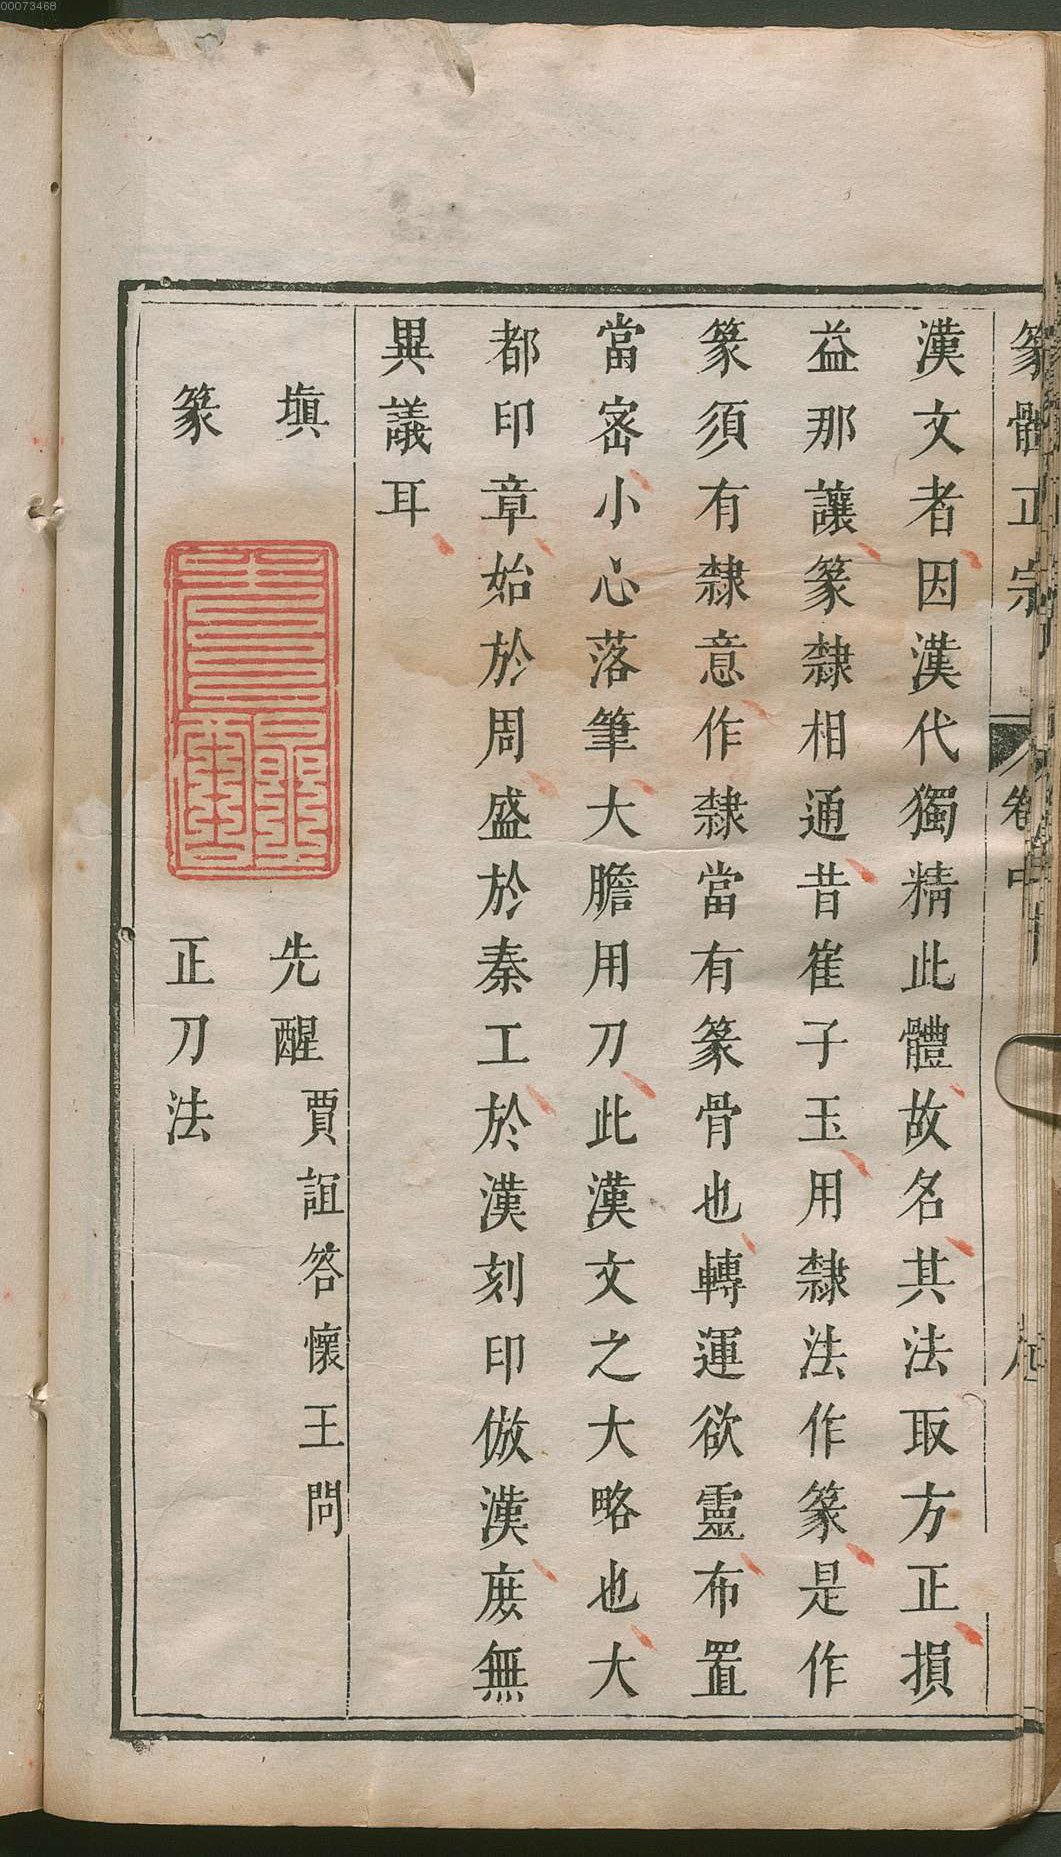 00073468
篆體正宗 卷中
漢文者因漢代獨精此體故名其法取方正損
益那讓篆隸相通昔崔子玉用隸法作篆是作
篆須有隸意作隸當有篆骨也轉運欲靈布置
當密小心落筆大膽用刀此漢文之大略也大
都印章始於周盛於秦工於漢刻印倣漢庶無
異議耳
塡 先醒賈誼答懷王問
篆 正刀法